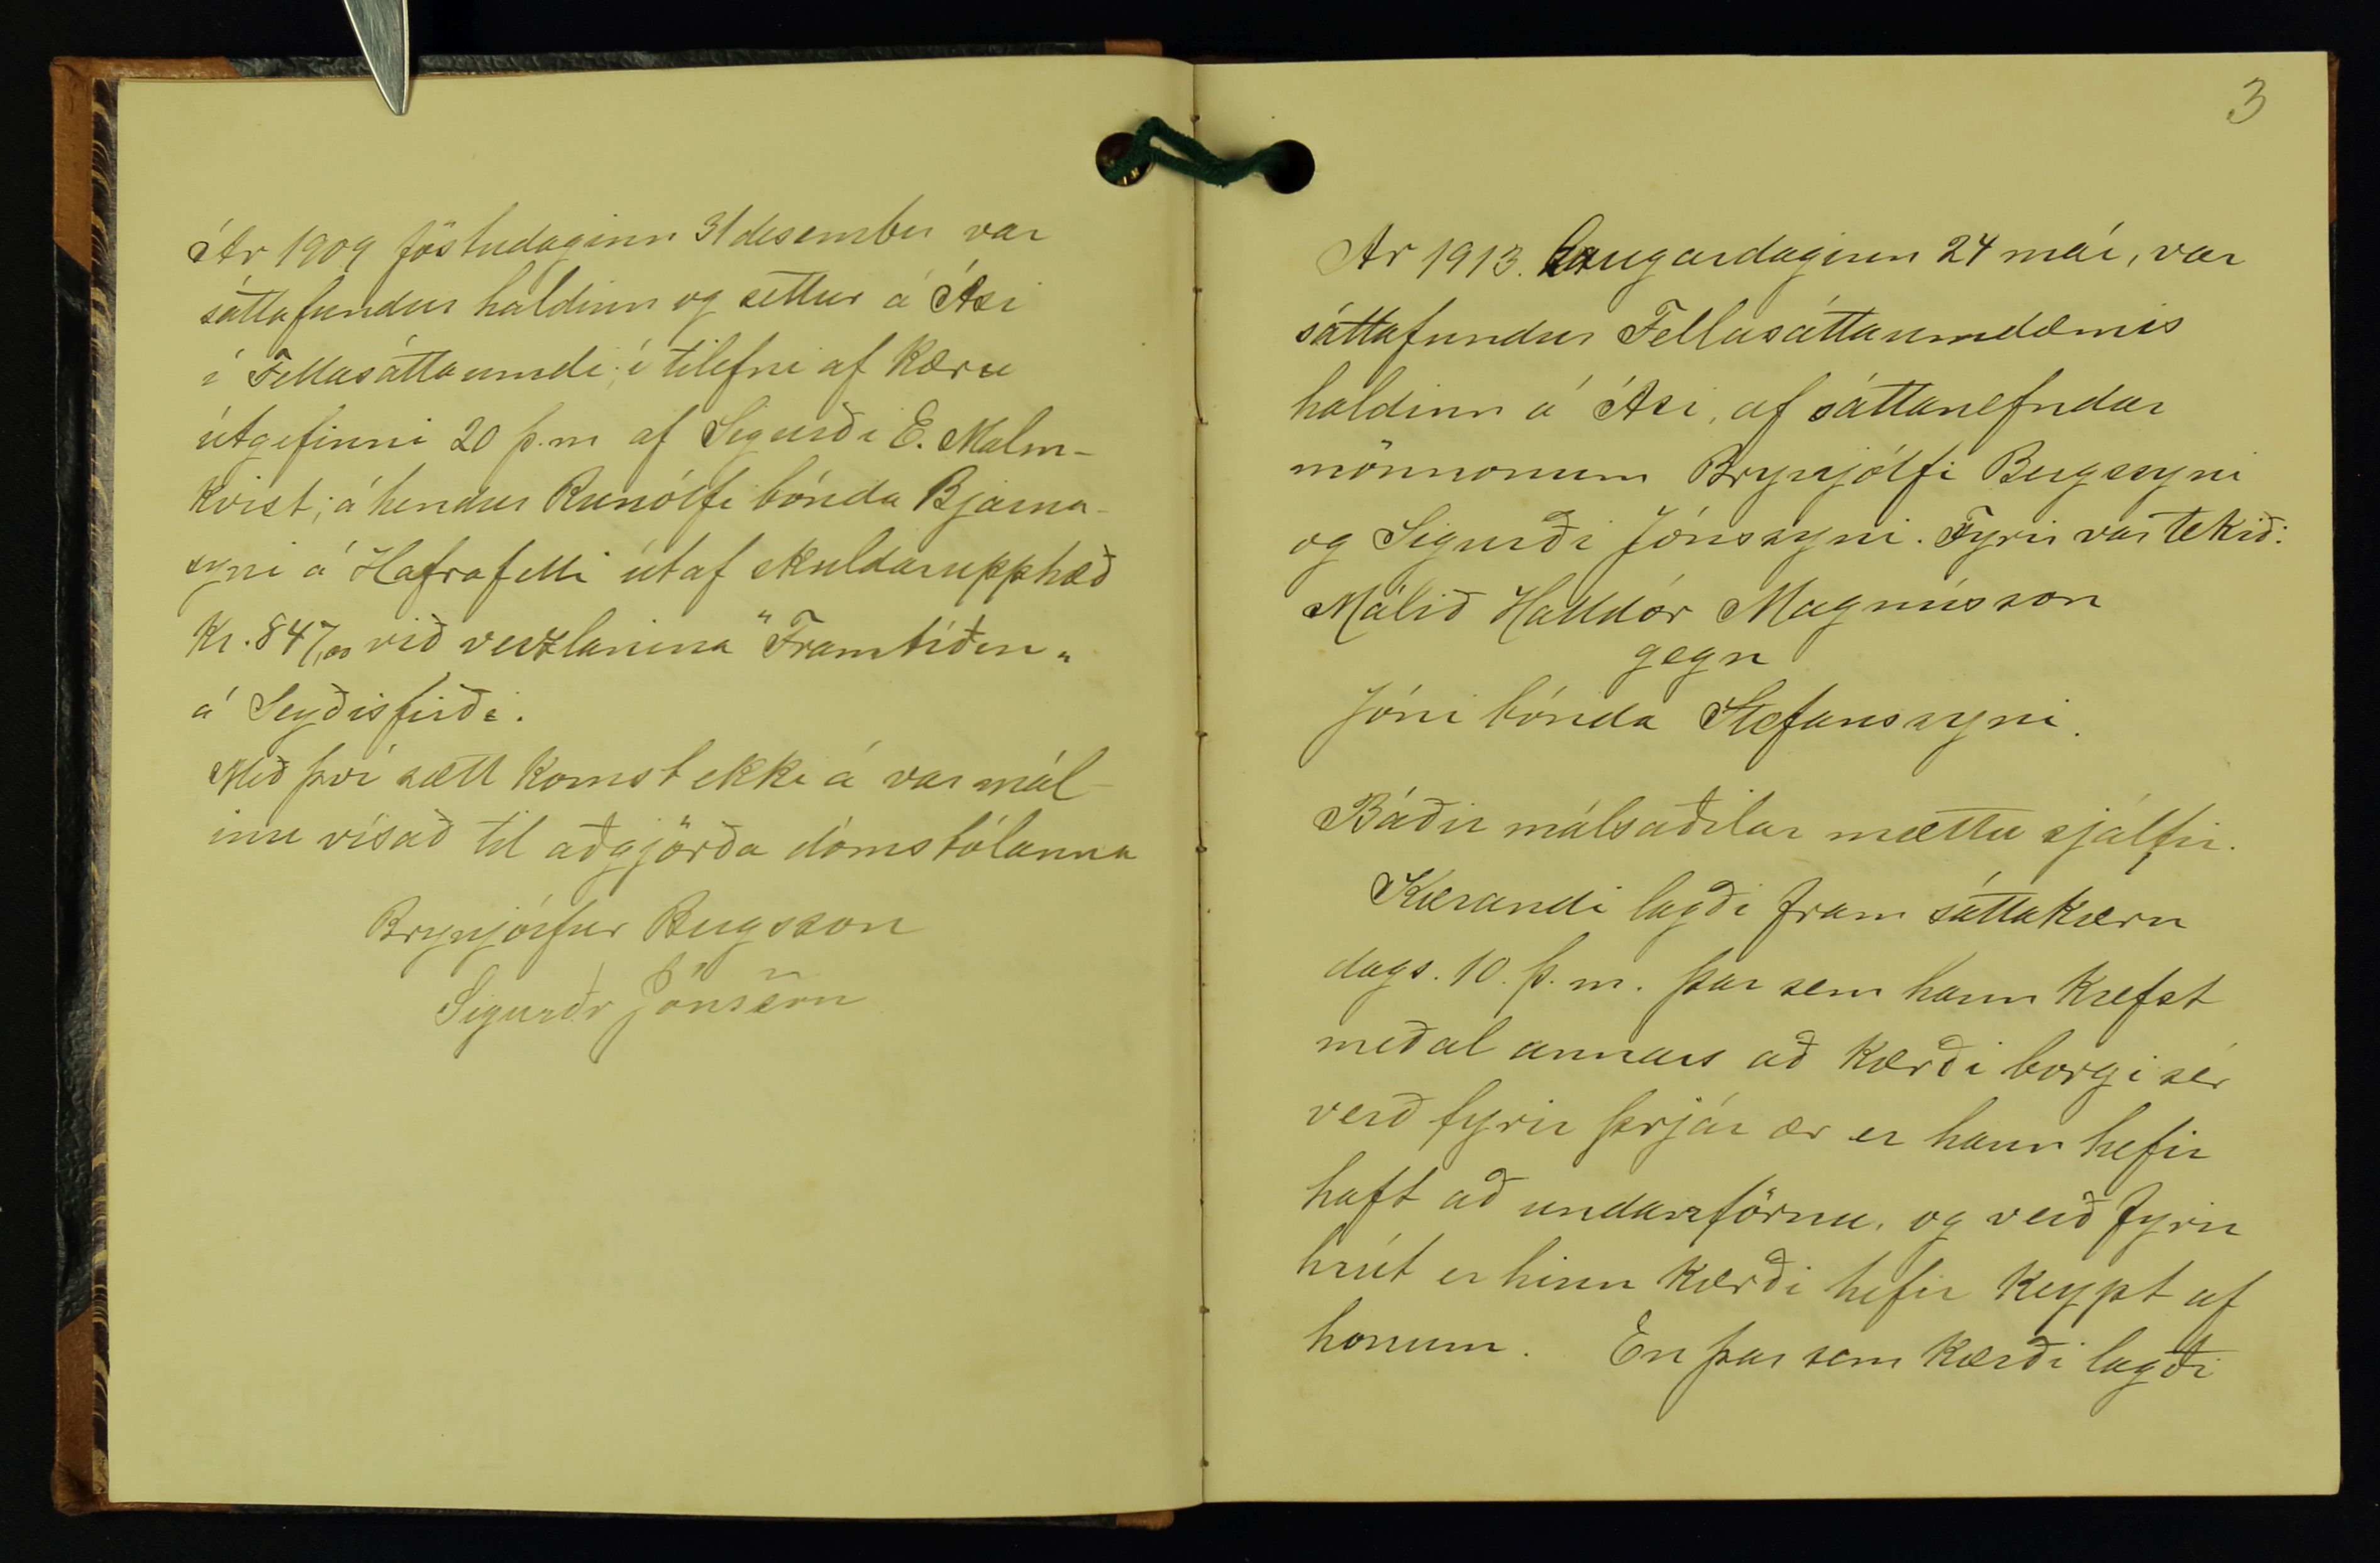 Ár 1909 föstudaginn 31 desember var
sáttafundur haldinn og settur á Ási
í Fellasáttaumdi; í tilefni af kæru
útgefinni 20 þ.m af Sigurði E. Malm-
kvist; á hendur Runólfi bónda Bjarna-
syni á Hafrafelli útaf skuldarupphæð
Kr. 847,00 við verzlanina "Framtíðin"
á Seyðisfirði.
Með því sætt komst ekki á var mál-
inu vísað til aðgjörða dómstólanna
Brynjólfur Bergsson
Sigurðr Jónsson
3
Ár 1913. Laugardaginn 24 maí, var
sáttafundur Fellasáttaumdæmis
haldinn á Ási, af sáttanefndar
mönnonum Brynjólfi Bergsyni
og Sigurði Jónssyni. Fyrir var tekið:
Málið Halldór Magnússon
gegn
Jóni bónda Stefanssyni.
Báðir málsaðilar mættu sjálfir.
Kærandi lagði fram sáttakæru
dags. 10. þ. m. þar sem hann krefst
meðal annars að kærði borgi sér
verð fyrir þrjár ær er hann hefir
haft að undanförnu, og verð fyrir
hrút er hinn kærði hefir keypt af
honum. En þar sem kærði lagði